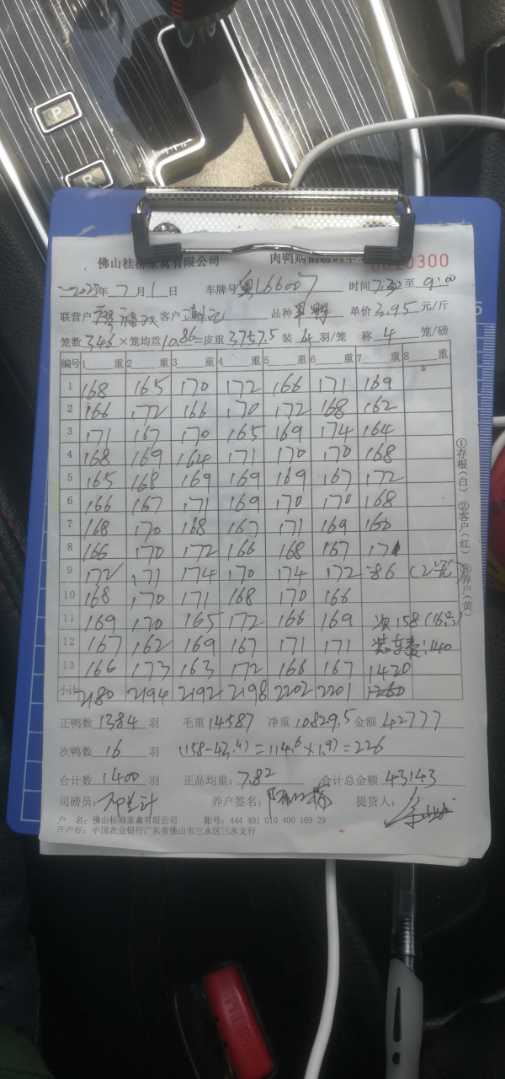 P
R
佛山桂柳家禽有限公司 肉鸭购销 0010300
2025年7月1日 车牌号粤166007 时间7:32至9:00
联营户 客户 品种 单价3.95元/斤
笼数346×笼均皮10.86=皮重3757.5 装4羽/笼 称4笼/磅
编号 1 重 2 重 3 重 4 重 5 重 6 重 7 重 8 重
1 168 165 170 172 166 171 169
2 166 172 166 170 172 168 162
3 171 167 170 165 169 174 164
4 168 169 164 171 170 170 168
5 165 168 169 169 169 167 172
6 166 167 171 169 170 170 168
7 168 170 168 167 171 169 160
8 166 170 172 166 168 167 171
9 172 171 174 170 174 172 86
10 168 170 171 168 170 166
11 169 170 165 172 166 169 次158(16只)
12 167 162 169 167 171 171 装车费:140
13 166 173 163 172 166 167 1420
小计 2180 2194 2192 2198 2202 2201
正鸭数1384羽 毛重14587 净重10829.5 金额42777
次鸭数16羽 (158-43.4)=114.6×1.97=226
合计数1400羽 正品均重:7.82 合计总金额43143
司磅员: 养户签名: 提货人:
户 名:佛山桂柳家禽有限公司 账号:444 891 010 400 169 29
开户行:中国农业银行广东省佛山市三水区三水支行
①存根(白) ②客户(红) ③养户(黄)